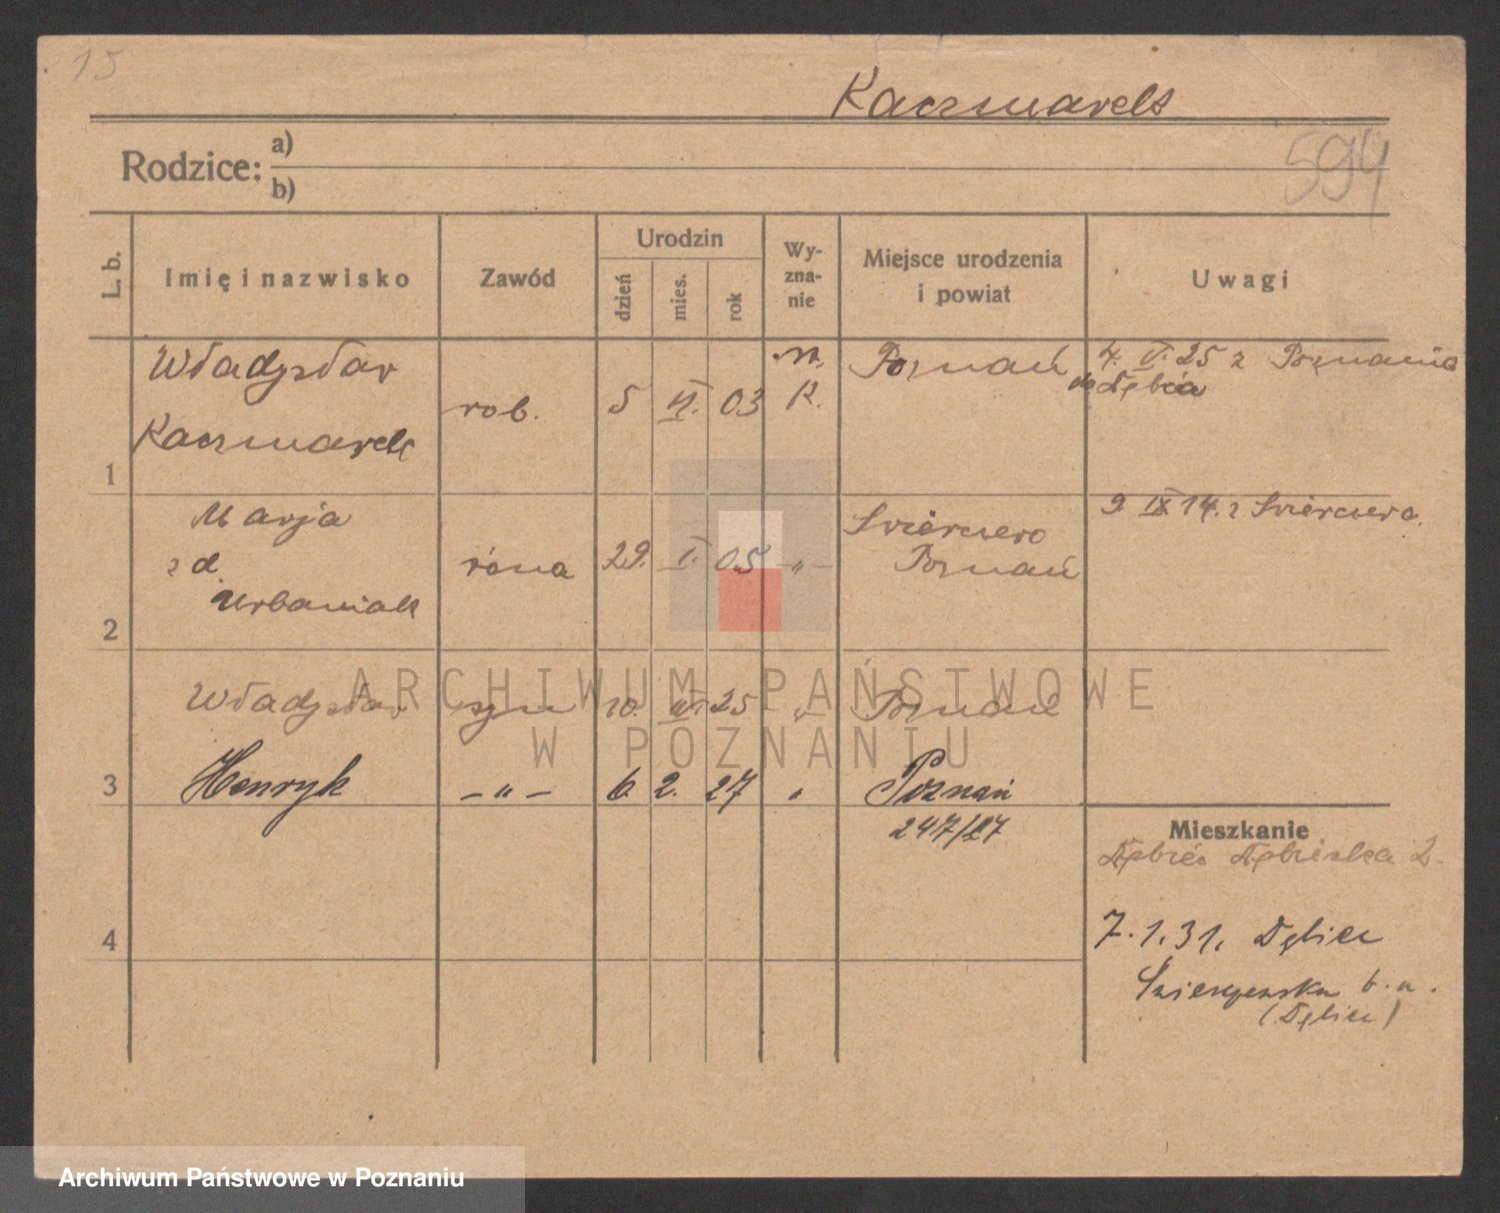 15
Kaczmarek
594
Rodzice: a)
b)
L. b.
Imię i nazwisko
Zawód
Urodzin
dzień
mies.
rok
Wy-
zna-
nie
Miejsce urodzenia
i powiat
Uwagi
1
Władysław
Kaczmarek
rob.
5
03
K.
Poznań
4. V. 25 z Poznania
do Dębca
2
Marja
z d.
Urbaniak
żona
29.
I.
05
-"-
Poznań
9 IX 14. z
3
Władysław
syn
10.
25
"
Poznań
Henryk
-"-
6.
2.
27
"
Poznań
247/27
4
Mieszkanie
2.
7.1.31. Dębiec
(Dębiec)
ARCHIWUM PAŃSTWOWE
W POZNANIU
Archiwum Państwowe w Poznaniu